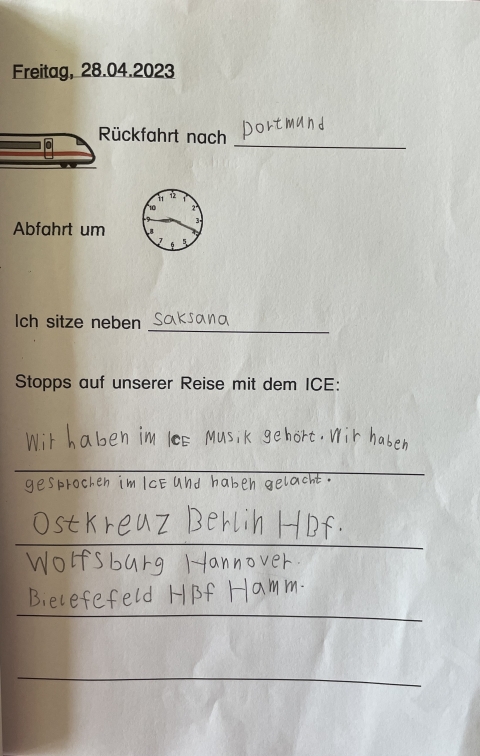 Freitag, 28.04.2023
Rückfahrt nach Dortmund
Abfahrt um
12
11 1
10 2
9 3
8 4
7 5
6
Ich sitze neben Saksana
Stopps auf unserer Reise mit dem ICE:
Wir haben im ICE Musik gehört. Wir haben
gesprochen im ICE und haben gelacht.
Ostkreuz Berlin HBf.
Wolfsburg Hannover.
Bielefefeld HBf Hamm.